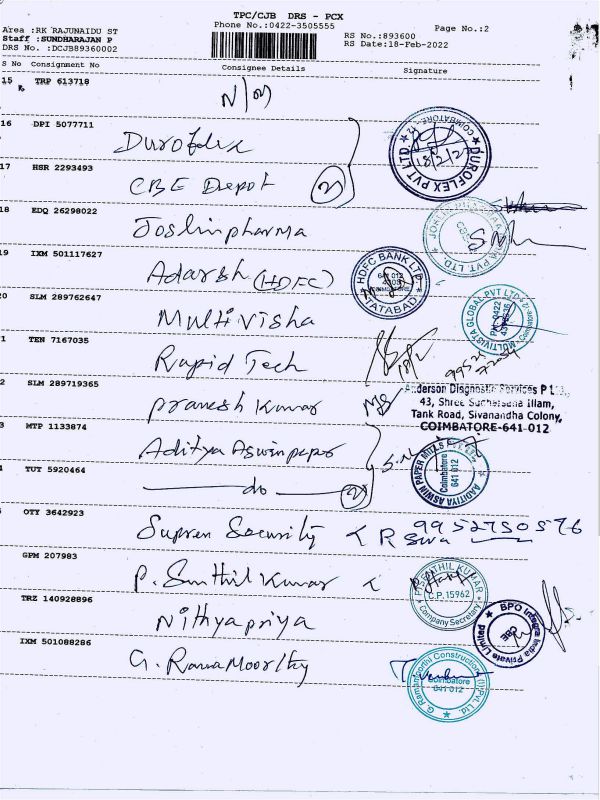 TPC/CJB DRS - PCX
Area :RK RAJUNAIDU ST
Phone No.:0422-3505555
Page No.:2
Staff :SUNDHARAJAN P
RS No.:893600
DRS No. :DCJB89360002
RS Date:18-Feb-2022
S No Consignment No Consignee Details Signature
15 TRP 613718 N/M
16 DPI 5077711 Duroflex
DUROFLEX PVT LTD.
COIMBATORE
18/2/22
17 HSR 2293493 CBE Depot 2
18 EDQ 26298022 Joslinpharma
PVT. LTD.
9 IXM 501117627 Adarsh (HDFC)
HDFC BANK LTD
641 012
TATABAD
0 SLM 289762647 Multivisha
GLOBAL-PVT LTD
Coimbatore
PH: 0422
1 TEN 7167035 Rapid Tech
18/2
2 SLM 289719365 Pranesh Kumar
Anderson Diagnostic Services P Ltd.,
43, Shree Illam,
Tank Road, Sivanandha Colony,
COIMBATORE-641-012
3 MTP 1133874 Aditya Aswin paper
AADITYA ASWIN PAPER MILLS
Coimbatore
641 012
TUT 5920464 do 2
OTY 3642923 Supren Security R Siva 9952750576
GPM 207983 P. Senthil Kumar
P. SENTHIL KUMAR
C.P. 15962
Company Secretary
TRZ 140928896 Nithyapriya
BPO Integra India Private Limited
CBE
IXM 501088286 G. RamaMoorthy
G. Ramamoorthy Constructions (I) Pvt. Ltd.
Coimbatore
641 012